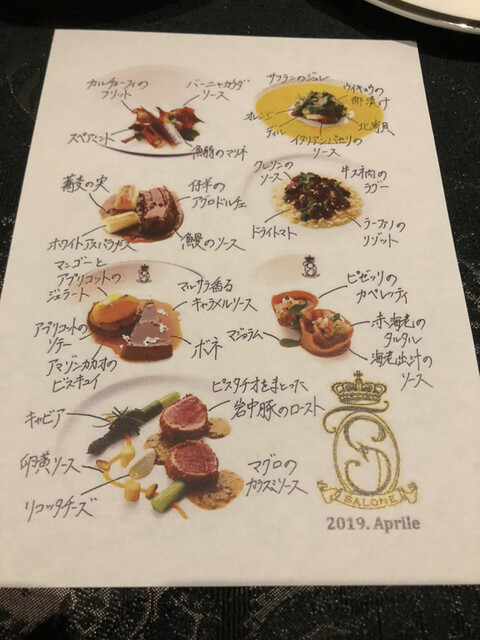 カルチョーフィの
フリット
バーニャカウダ
ソース
スペアミント
魚のマリネ
サフランのジュレ
ウイキョウの
酢漬け
オレンジ
ディル
イタリアンパセリの
ソース
北寄貝
蕎麦の実
仔羊の
アグロドルチェ
ホワイトアスパラガス
鰻のソース
クレソンの
ソース
牛スネ肉の
ラグー
ドライトマト
ラーファノの
リゾット
マンゴーと
アプリコットの
ジェラート
マルサラ香る
キャラメルソース
アプリコットの
ソテー
アマゾンカカオの
ビスキュイ
ボネ
ピゼッリの
カペレッティ
マジョラム
赤海老の
タルタル
海老出汁の
ソース
キャビア
ピスタチオをまとった
岩中豚のロースト
卵黄ソース
リコッタチーズ
マグロの
カラスミソース
SALONE
2019. Aprile